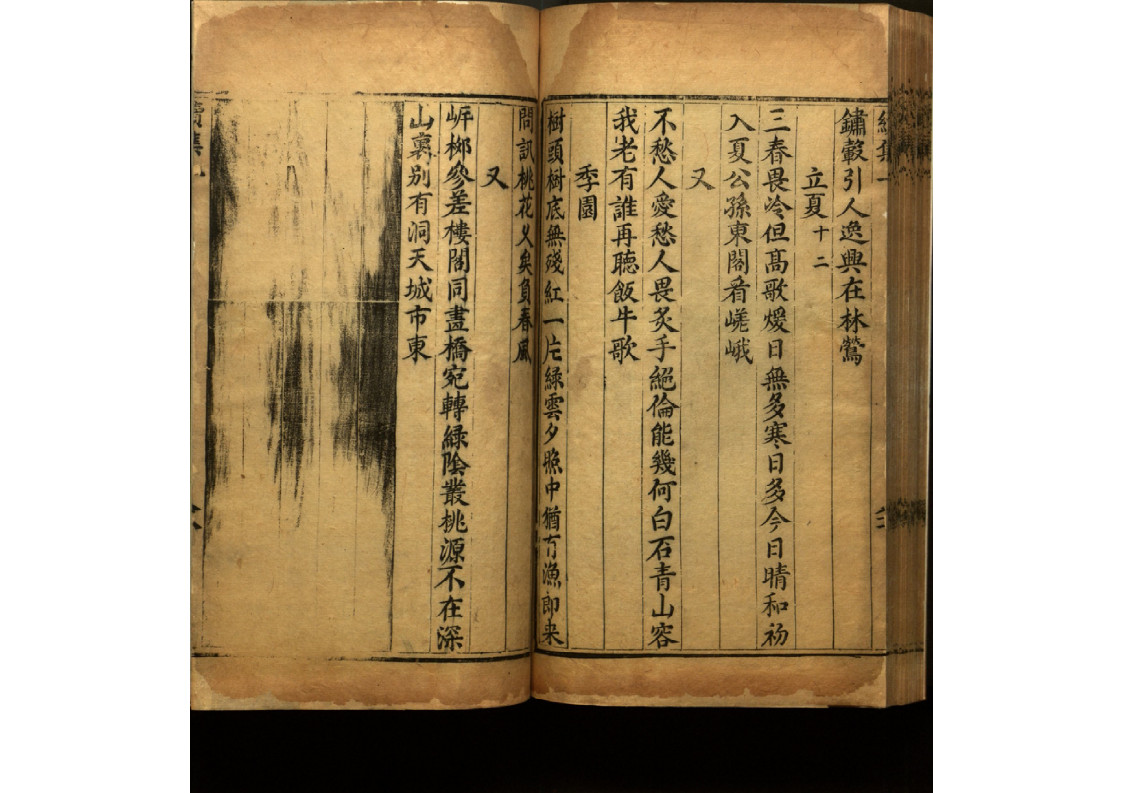 鏽轂引人逸興在林鶯
立夏十二
三春畏冷但高歌煖日無多寒日多今日晴和初
入夏公孫東閣看嵯峨
又
不愁人愛愁人畏炙手絕倫能幾何白石青山容
我老有誰再聽飯牛歌
季園
樹頭樹底無殘紅一片綠雲夕照中猶有漁郎來
問訊桃花乂矣負春風
又
岸栁參差樓閣同畫橋宛轉綠陰叢桃源不在深
山裏別有洞天城市東
續集